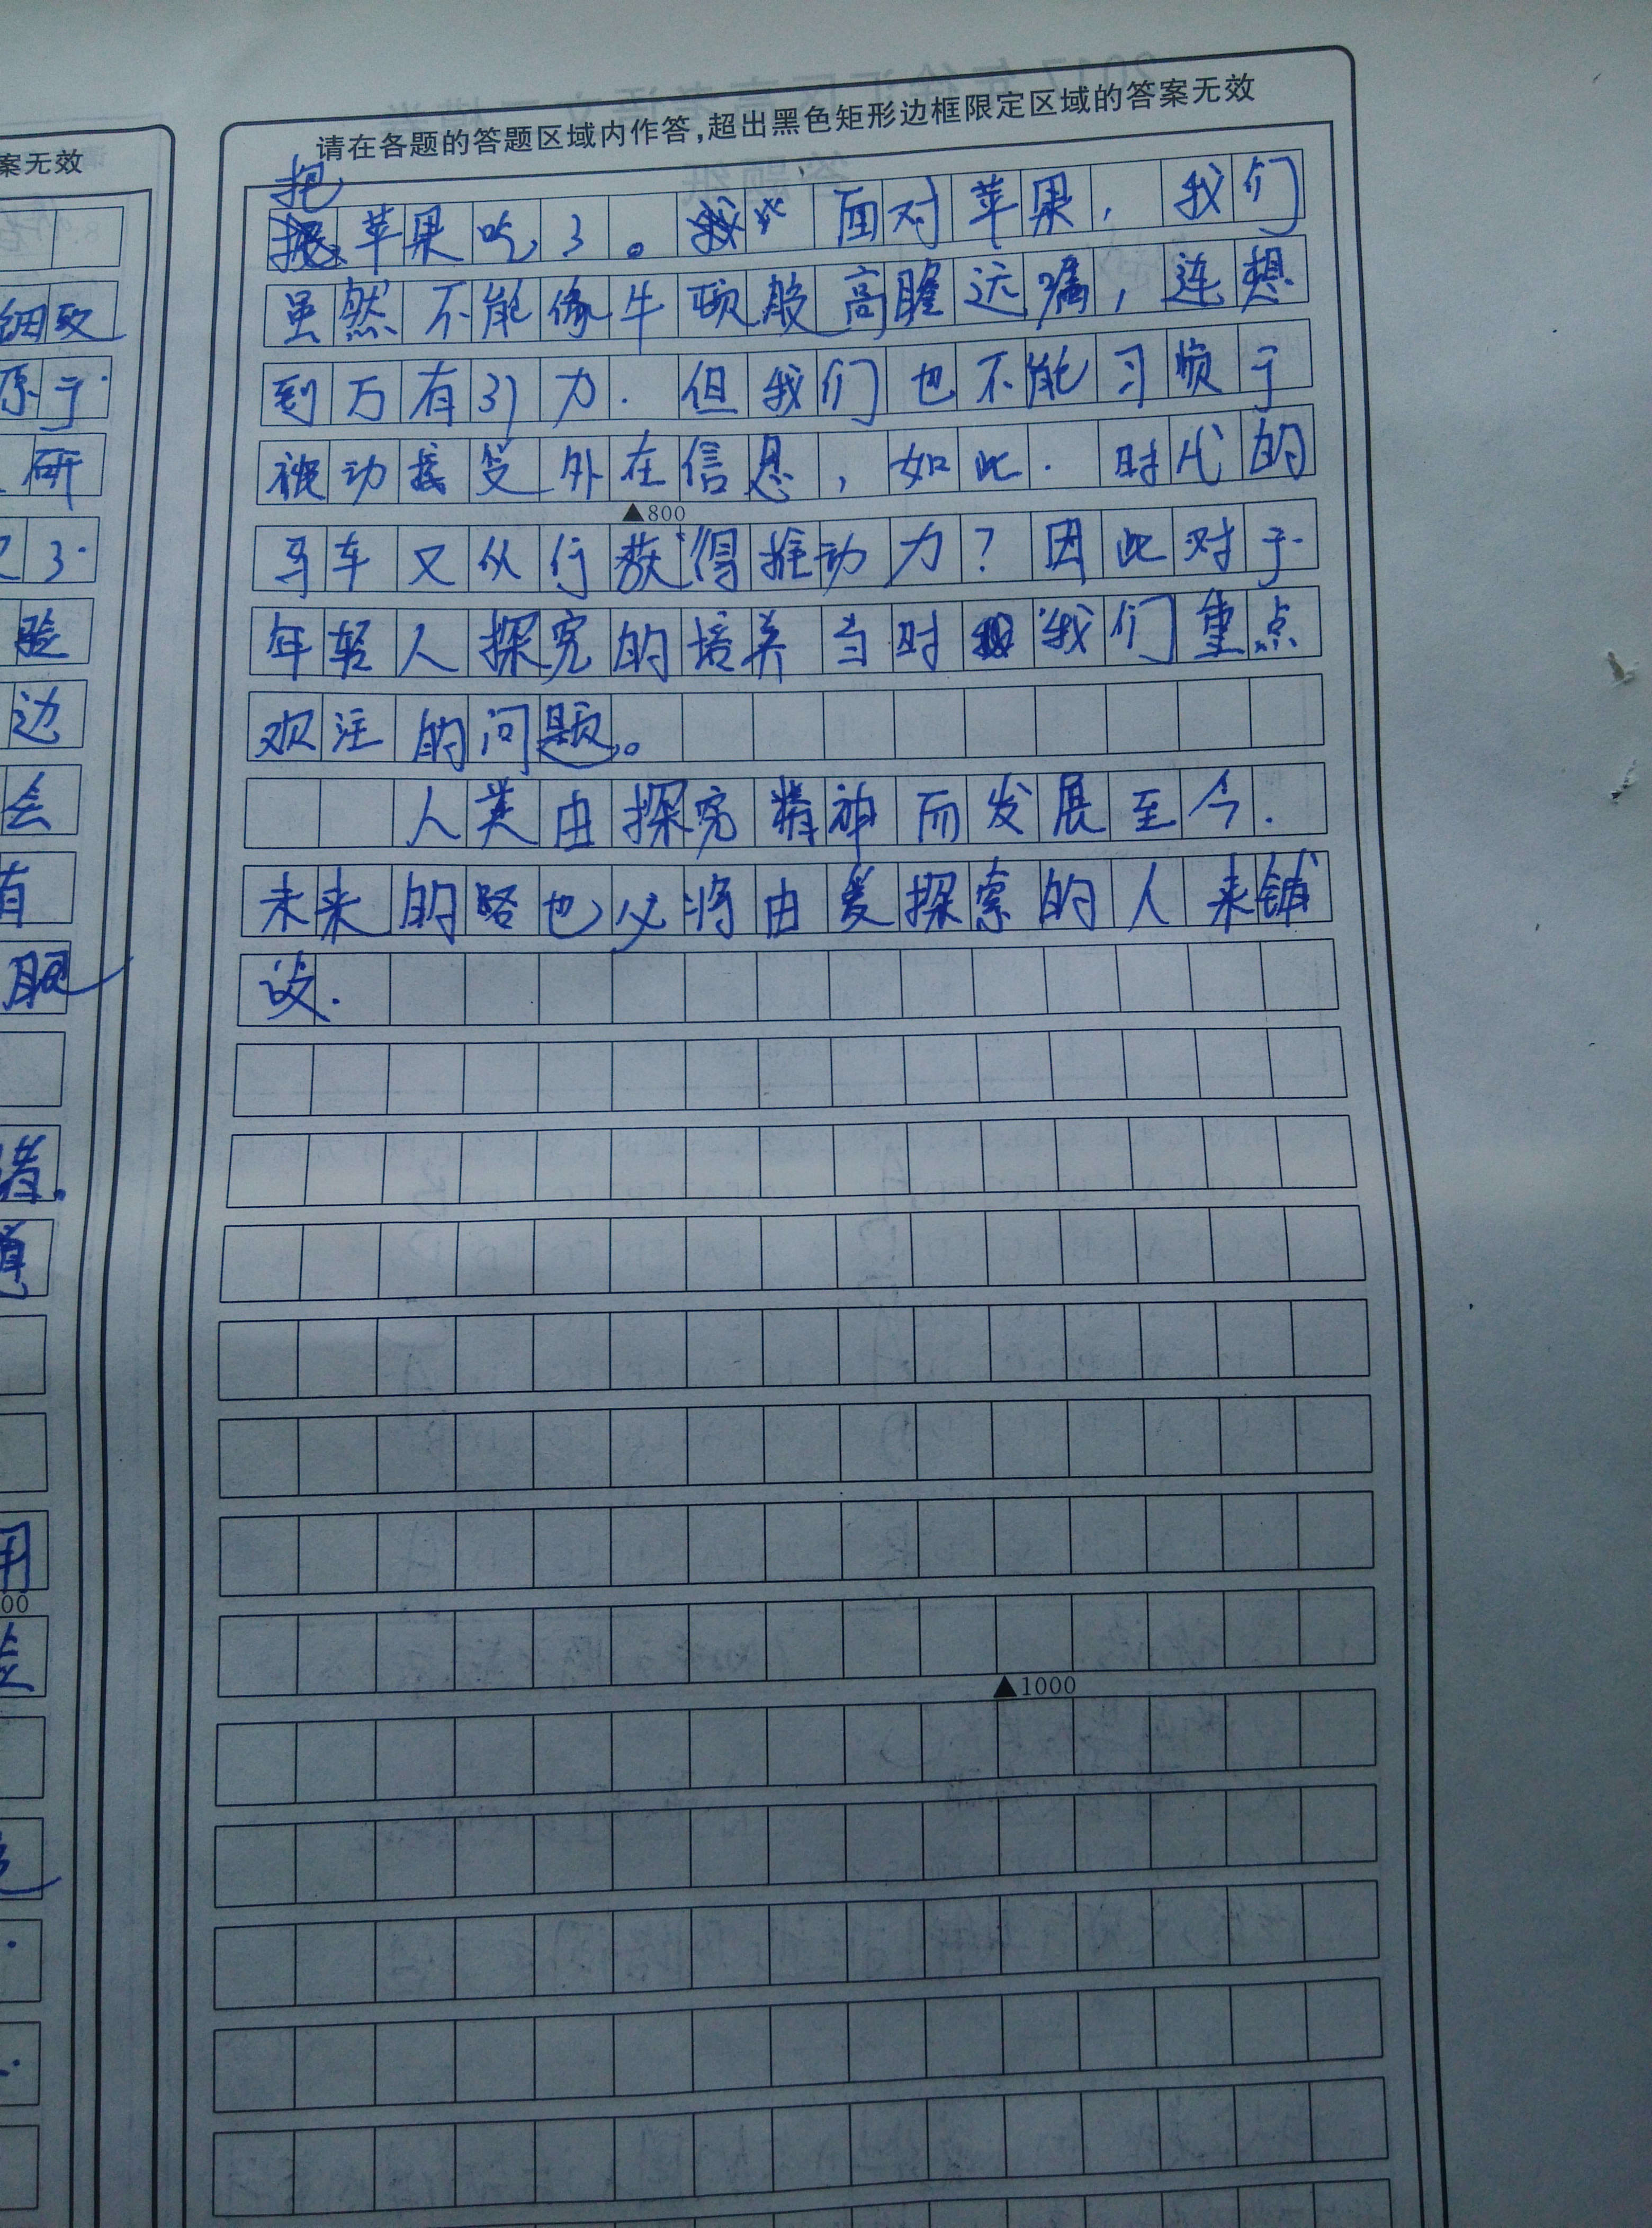 案无效
细致
原于
研
了.
验
边
会
有
腿
请在各题的答题区域内作答,超出黑色矩形边框限定区域的答案无效
把
苹果吃了。面对苹果，我们
虽然不能像牛顿般高瞻远瞩，连想
到万有引力.但我们也不能习惯于
被动接受外在信息，如此.时代的
▲800
马车又从何获得推动力？因此对于
年轻人探究的培养当时我们重点
观注的问题。
人类由探究精神而发展至今.
未来的路也必将由爱探索的人来铺
设.
▲1000